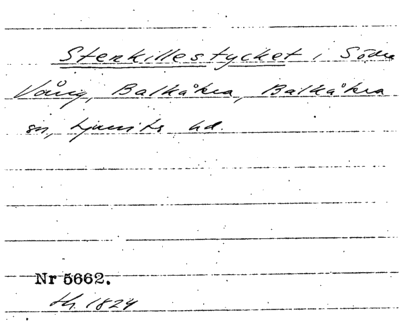 Stenkillestycket i Södra
Vång, Balkåkra, Balkåkra
sn, Ljunits hd.
Nr 5662.
1824